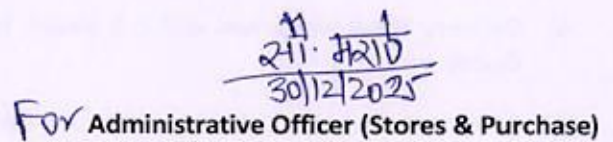 30/12/2025
For Administrative Officer (Stores & Purchase)